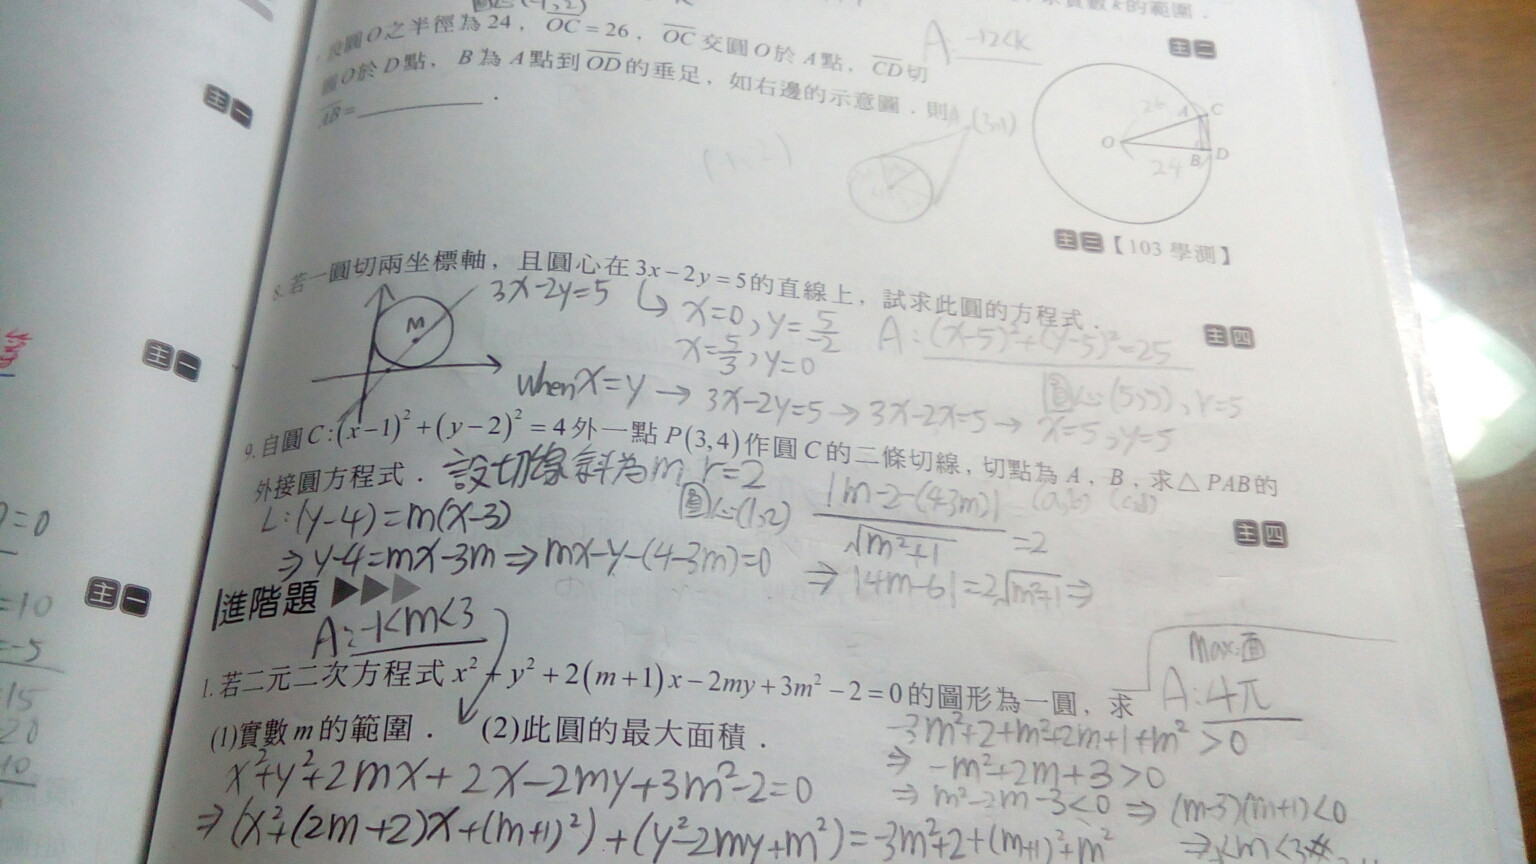 圓心(-1,2)
求實數k的範圍.
A:-12<k
主二
圓O之半徑為24,OC=26,OC交圓O於A點,CD切
圓O於D點,B為A點到OD的垂足,如右邊的示意圖.則
AB=________.
(3,1)
26 A C
O
B D
24
主三【103學測】
8.若一圓切兩坐標軸,且圓心在3x-2y=5的直線上,試求此圓的方程式.
主四
M
3x-2y=5 ↳ x=0,y=5/-2
x=5/3,y=0
A:(x-5)²+(y-5)²=25
圓心:(5,5),r=5
when x=y→3x-2y=5→3x-2x=5→x=5,y=5
9.自圓C:(x-1)²+(y-2)²=4外一點P(3,4)作圓C的二條切線,切點為A,B,求△PAB的
外接圓方程式.
主四
設切線斜為m r=2
圓心:(1,2)
L:(y-4)=m(x-3)
|m-2-(4-3m)|/√m²+1=2
(a,b) (c,d)
⇒y-4=mx-3m⇒mx-y-(4-3m)=0
⇒|4m-6|=2√m²+1⇒
進階題
A:-1<m<3
Max:面
A:4π
1.若二元二次方程式x²+y²+2(m+1)x-2my+3m²-2=0的圖形為一圓,求
(1)實數m的範圍. (2)此圓的最大面積.
x²+y²+2mx+2x-2my+3m²-2=0
⇒(x²+(2m+2)x+(m+1)²)+(y²-2my+m²)=-3m²+2+(m+1)²+m²
-3m²+2+m²+2m+1+m²>0
⇒-m²+2m+3>0
⇒m²-2m-3<0⇒(m-3)(m+1)<0
⇒-1<m<3
主一
主一
主一
=0
=10
=-5
15
20
10